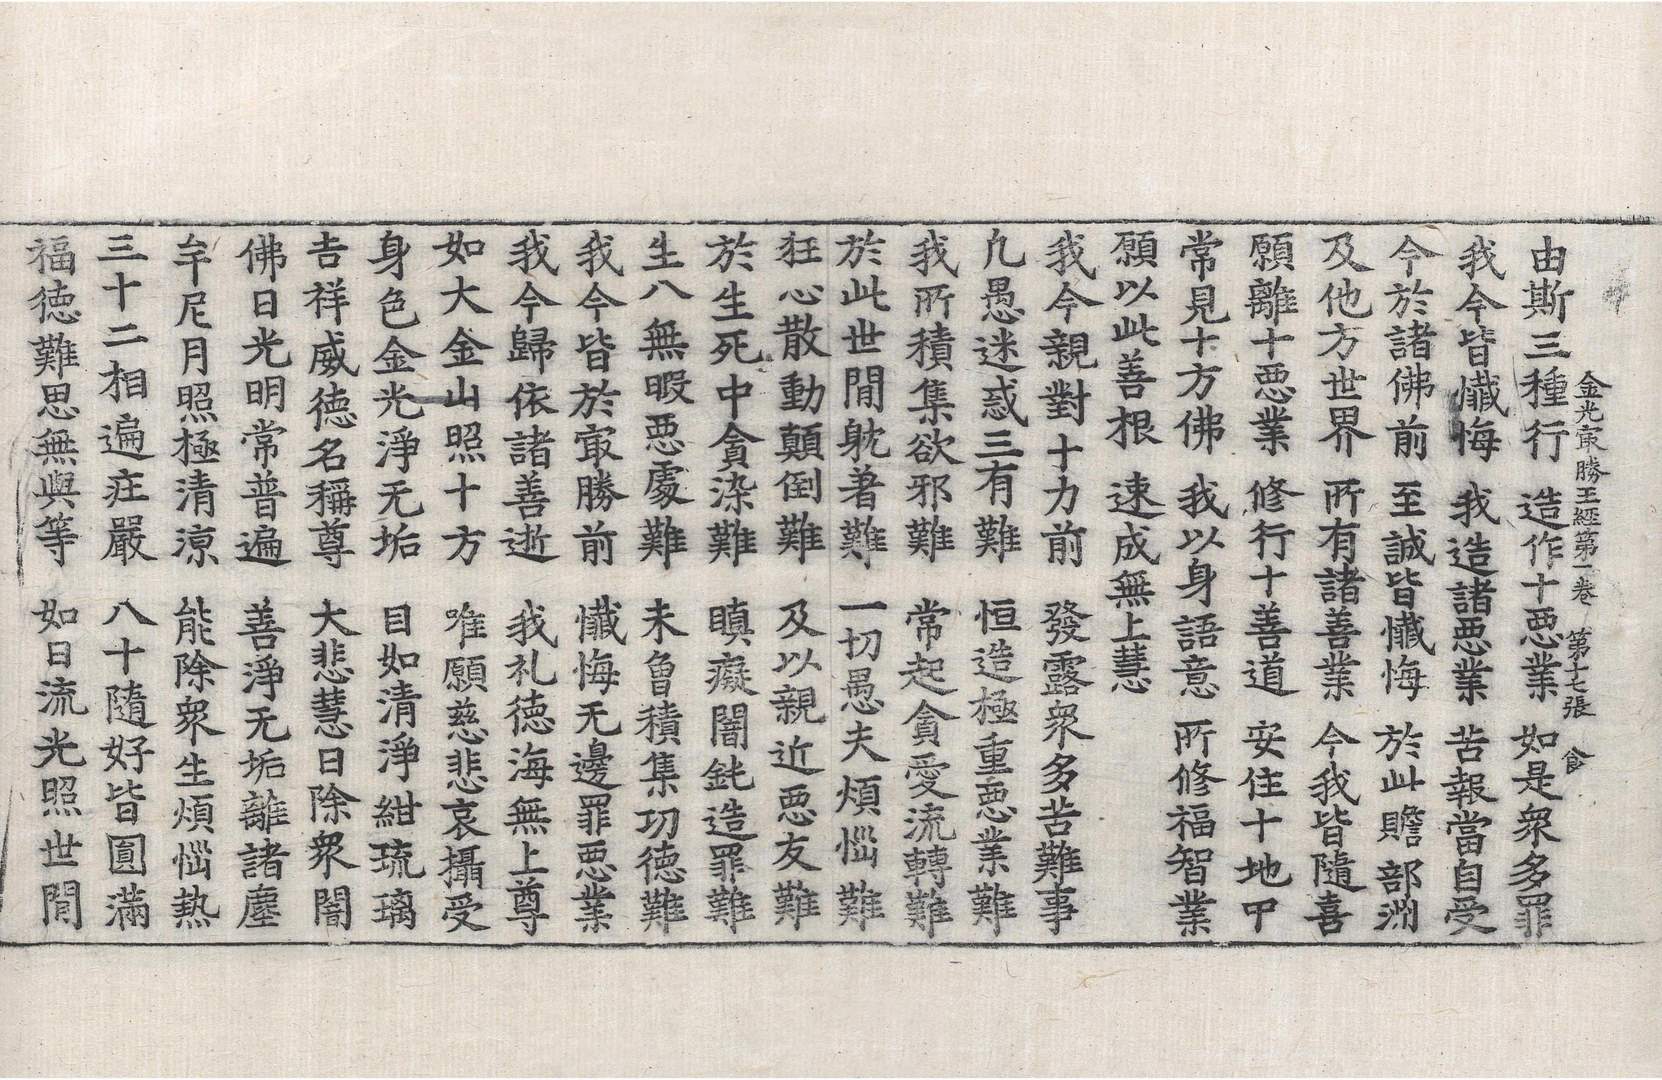 金光冣勝王経第二卷　第十七張　食
由斯三種行　造作十惡業　如是衆多罪
我今皆懺悔　我造諸惡業　苦報當自受
今於諸佛前　至誠皆懺悔　於此贍部洲
及他方世界　所有諸善業　今我皆隨喜
願離十惡業　修行十善道　安住十地中
常見十方佛　我以身語意　所修福智業
願以此善根　速成無上慧
我今親對十力前　發露衆多苦難事
凡愚迷惑三有難　恒造極重惡業難
我所積集欲邪難　常起貪愛流轉難
於此世間躭著難　一切愚夫煩惱難
狂心散動顛倒難　及以親近惡友難
於生死中貪染難　瞋癡闇鈍造罪難
生八無暇惡處難　未曾積集功德難
我今皆於冣勝前　懺悔无邊罪惡業
我今歸依諸善逝　我礼德海無上尊
如大金山照十方　唯願慈悲哀攝受
身色金光淨无垢　目如清淨紺琉璃
吉祥威德名稱尊　大悲慧日除衆闇
佛日光明常普遍　善淨无垢離諸塵
牟尼月照極清凉　能除衆生煩惱熱
三十二相遍庄嚴　八十隨好皆圓滿
福德難思無與等　如日流光照世間